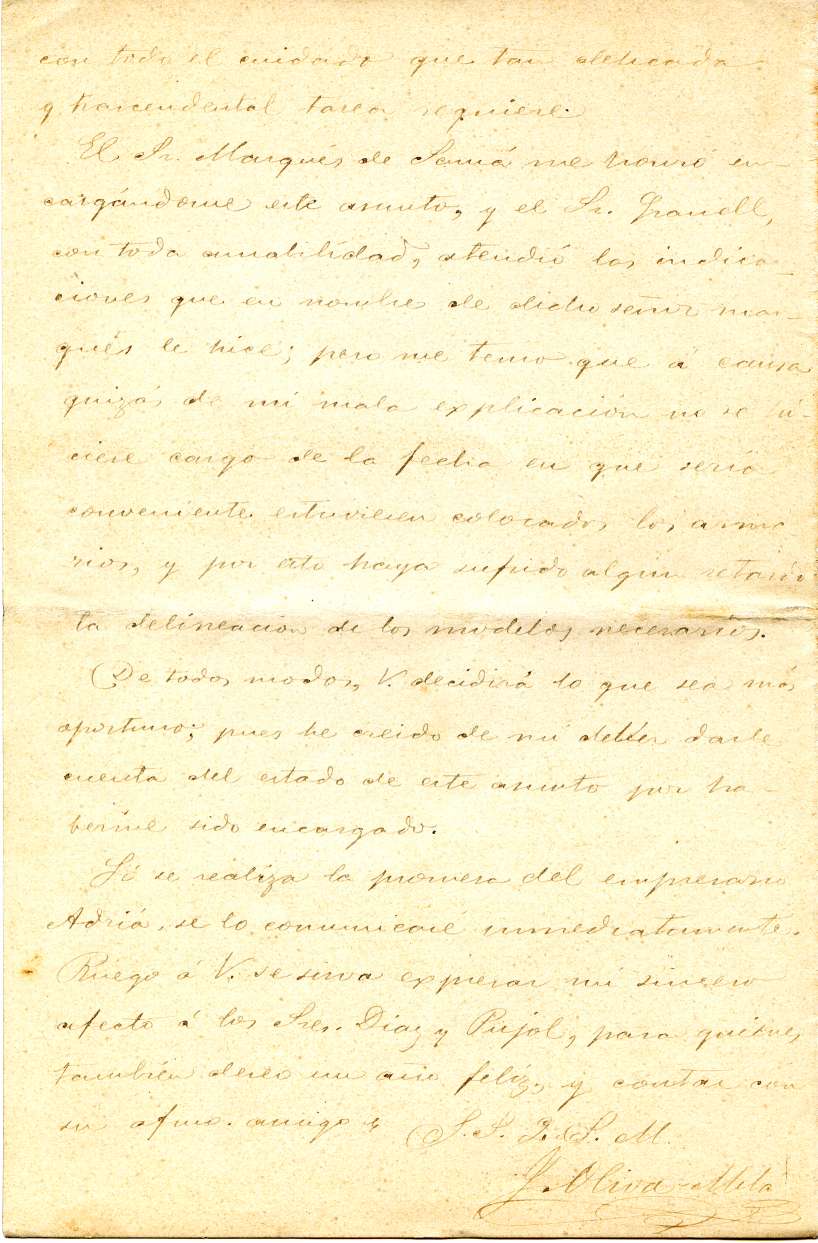 con todo el cuidado que tan delicada
y trascendental tarea requiere.
El Sr. Marqués de Samá me honró en-
cargándome este asunto, y el Sr. Granell,
con toda amabilidad, atendió las indica-
ciones que en nombre de dicho señor mar-
qués le hice; pero me temo que á causa
quizás de mi mala explicación no se hi-
ciese cargo de la fecha en que seria
conveniente estuviesen colocados los arma
rios, y por esto haya sufrido algun retardo
la delineación de los modelos necesarios.
De todos modos, V. decidirá lo que sea más
oportuno; pues he creido de mi deber darle
cuenta del estado de este asunto por ha-
berme sido encargado.
Si se realiza la promesa del empresario
Adriá, se lo comunicaré inmediatamente.
Ruego á V. se sirva expresar mi sincero
afecto á los Sres. Diaz y Pujol, para quienes
también deseo un año feliz, y contar con
su afmo. amigo y S. S. Q. S. M.
J. Oliva Milá